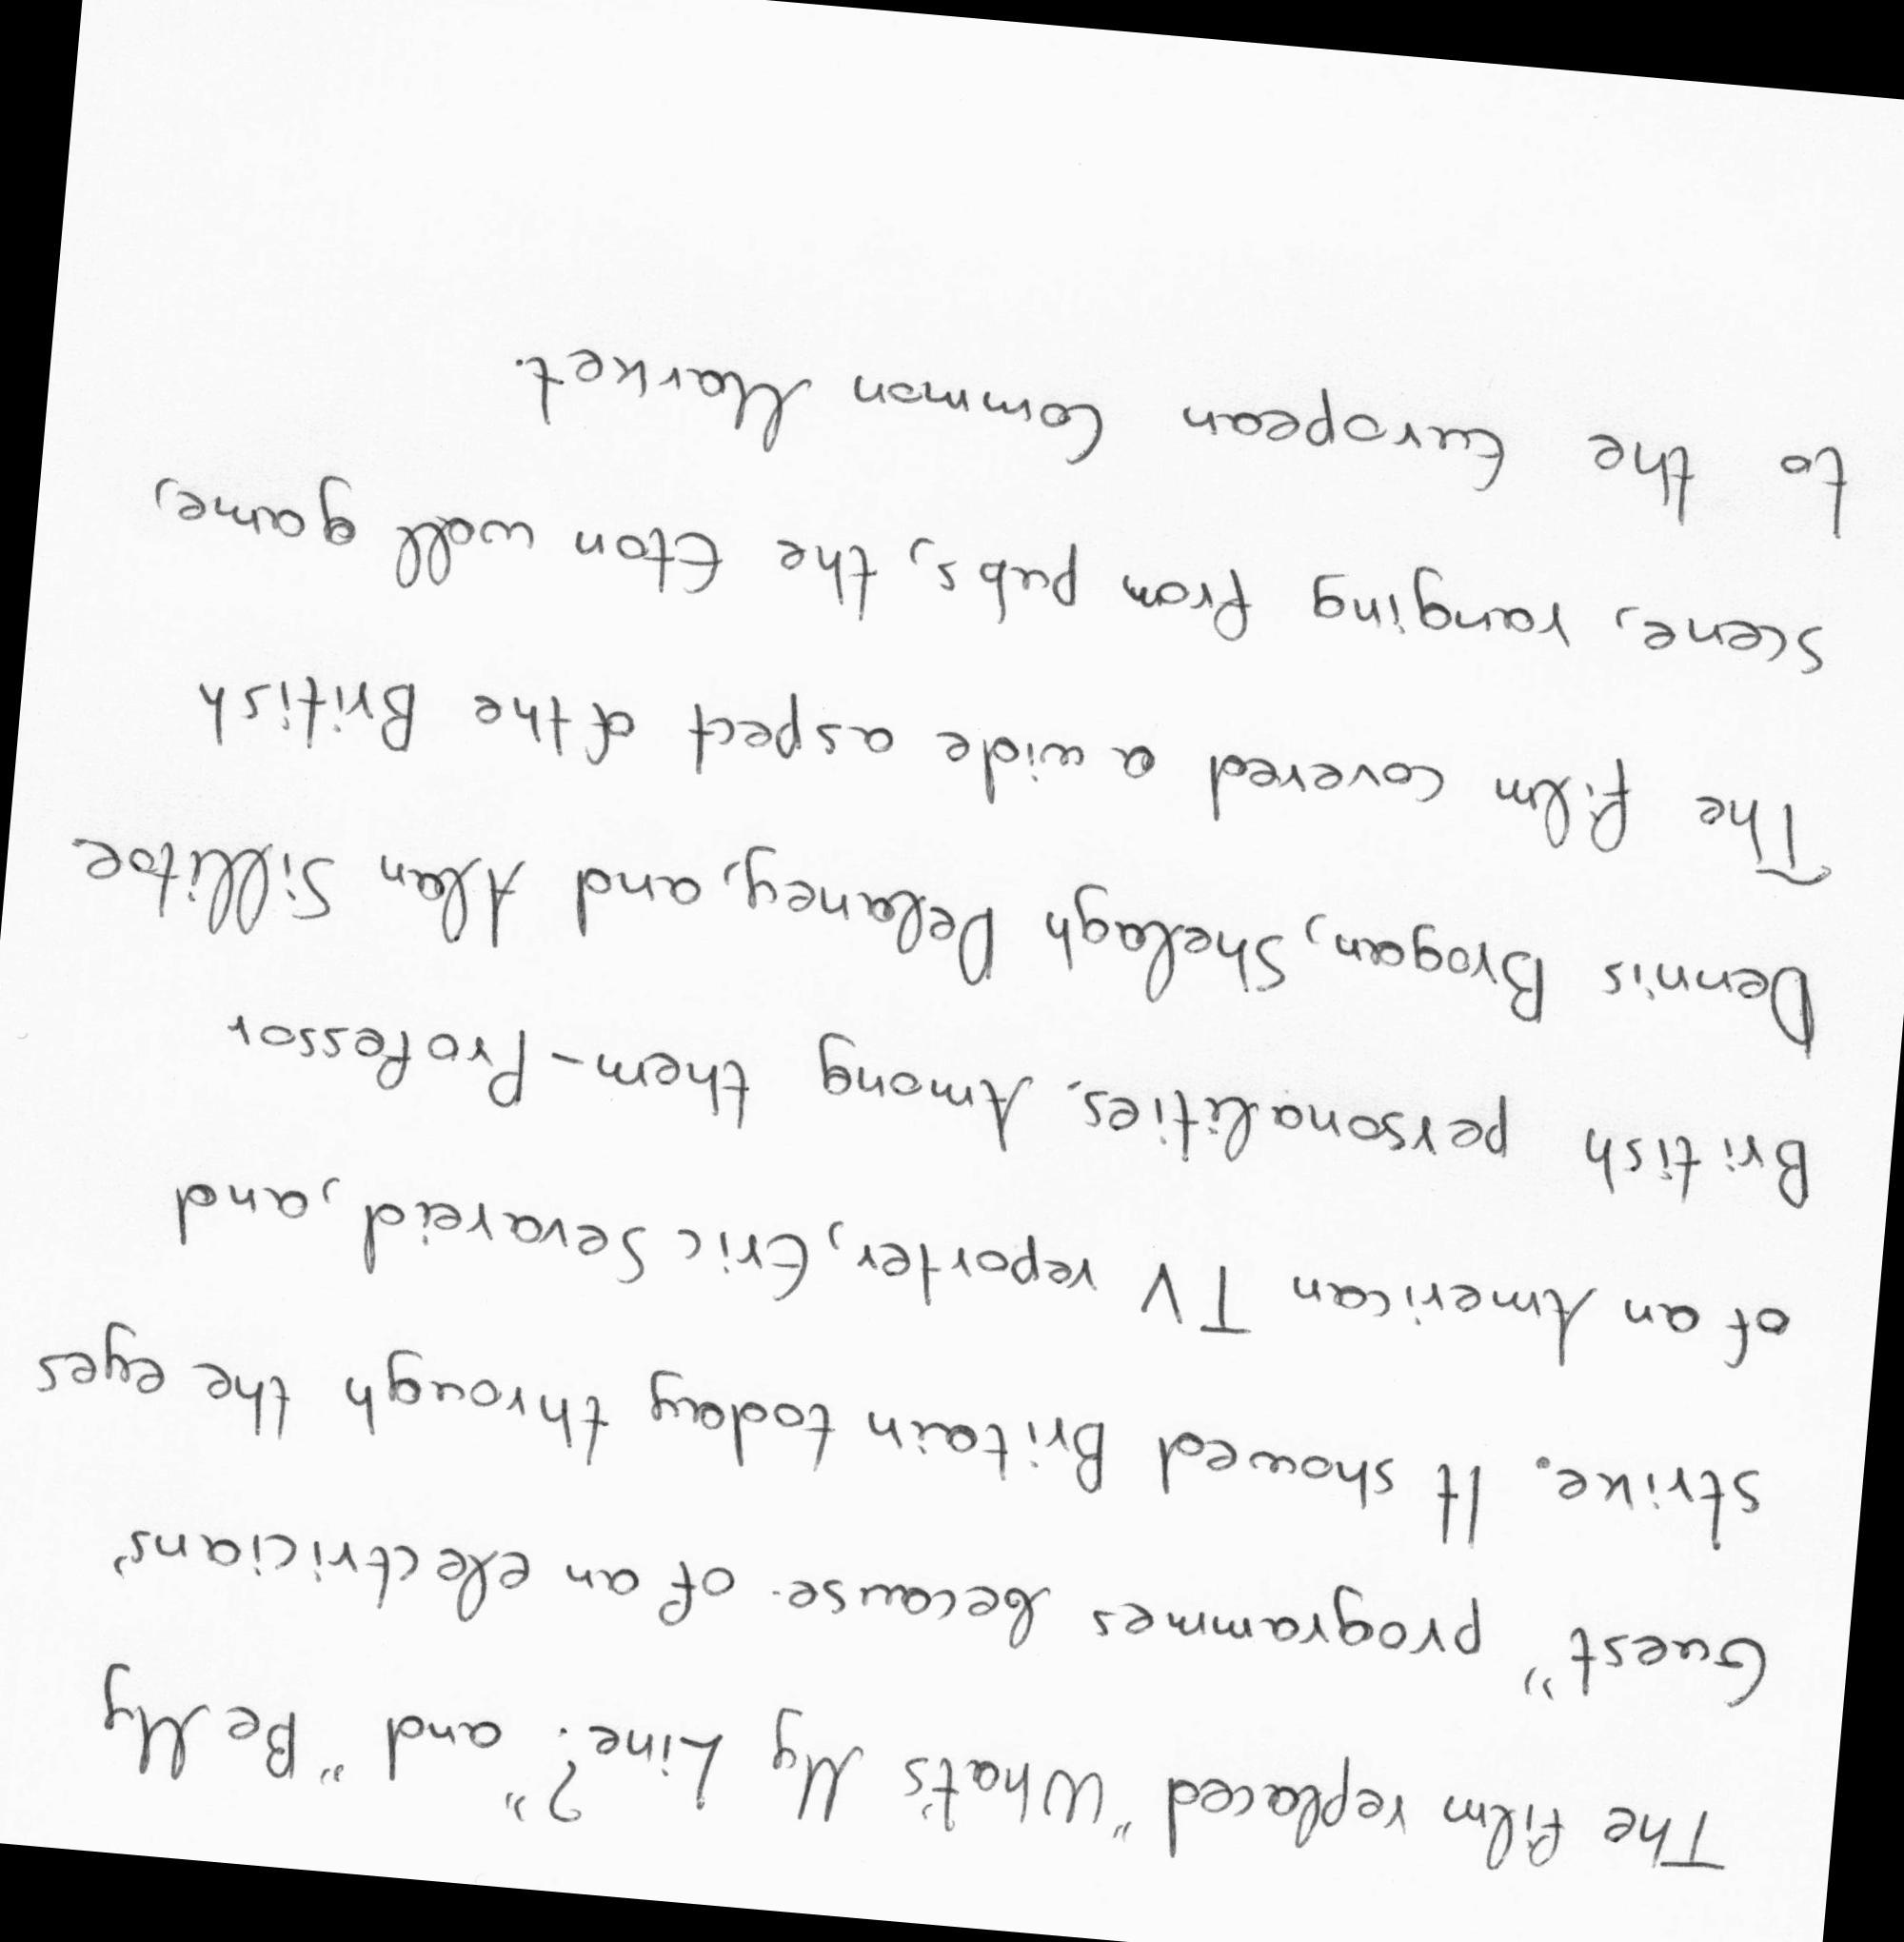 The film replaced "What's My Line?" and "Be My
Guest" programmes because of an electricians'
strike. It showed Britain today through the eyes
of an American TV reporter, Eric Sevareid, and
British personalities. Among them - Professor
Dennis Brogan, Shelagh Delaney, and Alan Sillitoe
The film covered a wide aspect of the British
scene, ranging from pubs, the Eton wall game,
to the European Common Market.